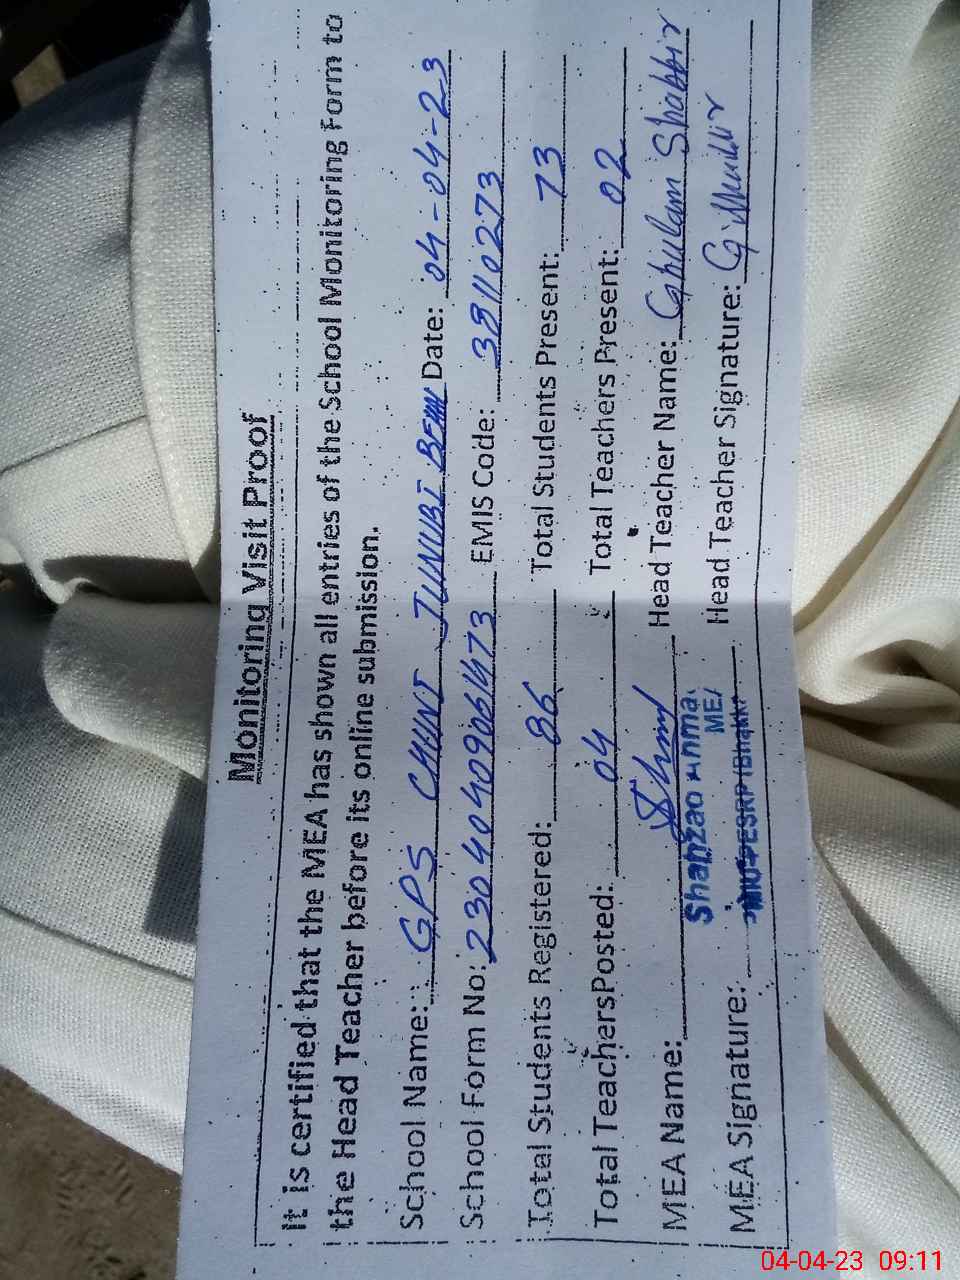 Monitoring Visit Proof
It is certified that the MEA has shown all entries of the School Monitoring Form to
the Head Teacher before its online submission.
School Name: GPS CHINI JUNUBI Date: 04-04-23
School Form No: EMIS Code: 38110273
Total Students Registered: 86 Total Students Present: 73
Total TeachersPosted: 04 Total Teachers Present: 02
MEA Name: Head Teacher Name: Ghulam Shabbir
MEA Signature: Head Teacher Signature:
MEA
04-04-23 09:11